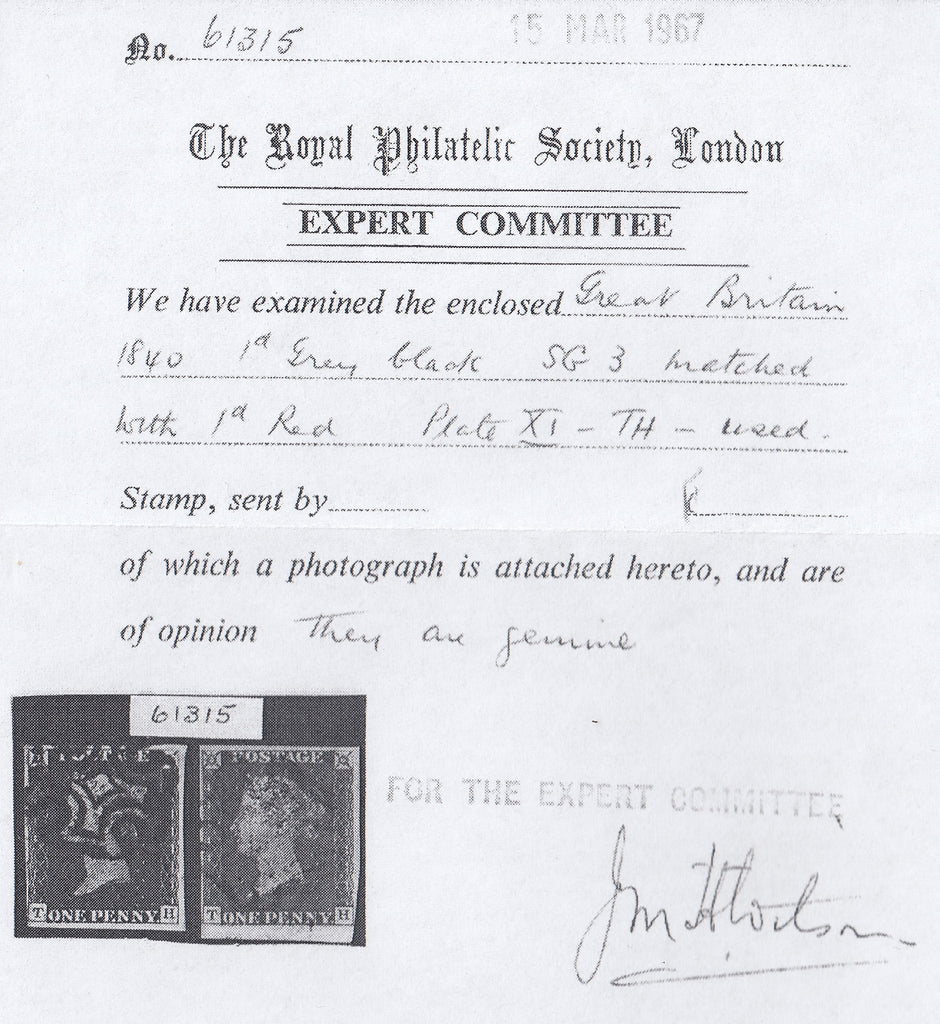 No. 61315 15 MAR 1967
The Royal Philatelic Society, London
EXPERT COMMITTEE
We have examined the enclosed Great Britain
1840 1d Grey black SG 3 matched
with 1d Red Plate XI - TH - used.
Stamp, sent by
of which a photograph is attached hereto, and are
of opinion They are genuine
61315
POSTAGE
T ONE PENNY H T ONE PENNY H
FOR THE EXPERT COMMITTEE